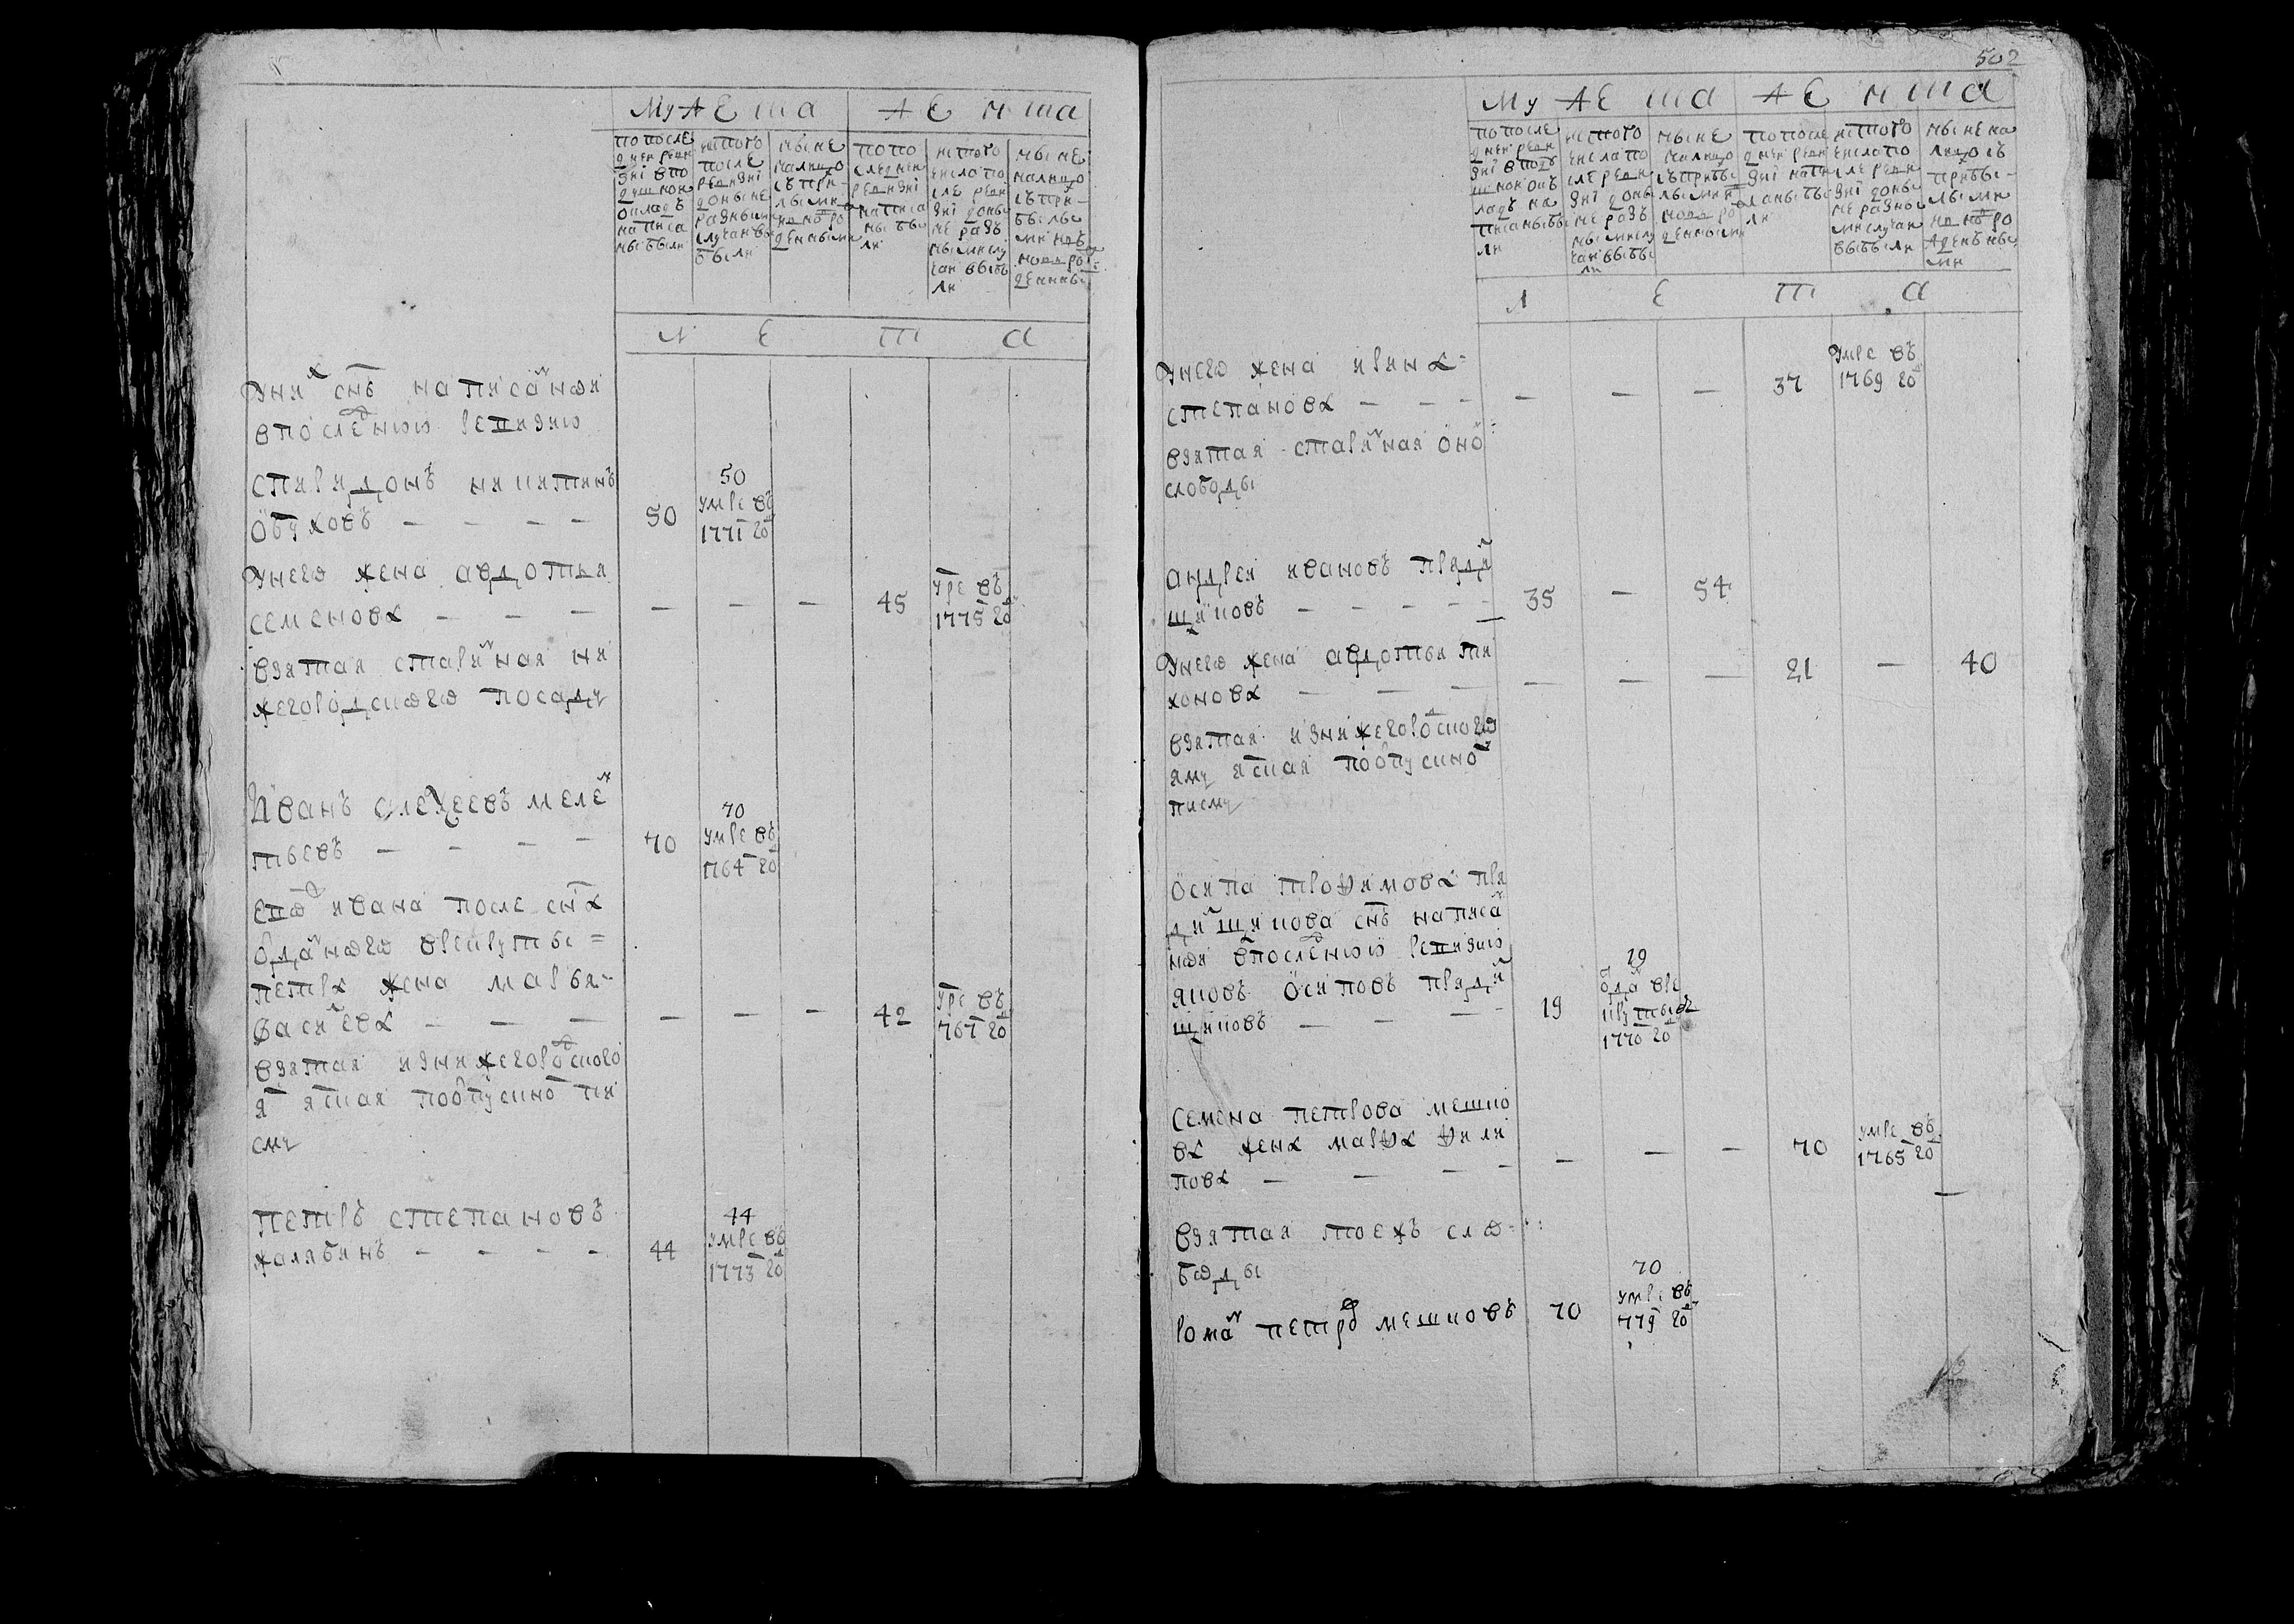 МУЖЕСКА
ЖЕНСКА
по после
дней реви
зиї в по
душной
окладъ
написа
ны были
ис того
после
ревизиї
до ныне
разными
случаи вы
были
ныне
налицо
съ при-
былыми
и вновь ро
жденными
по по
следней
ревизиї
написа
ны бы
ли
ис того
числа по
сле реви
зиї до ны
не разъ
ными слу
чаи выбы
ли
ныне
налицо
съ при-
былы
ми и
вновь ро
жденны
Л Е Т А
у них снъ написанои
в последнюю ревизию
спиридонъ никитинъ
обуховъ — — — —
50
50
умре въ
1771 го
у него жена авдотья
семенова — — —
— — — 45
умре въ
1775 го
взятая старинная ни
жегородского посаду
Иванъ алеѯеевъ мелен
тьевъ — — — —
70
70
умре въ
1764 го
ево ивана после сна
отданного в рекруты =
петра жена марья =
васильева — — —
— — — 42
умре въ
767 го
взятая из нижегородского
яму ямская по отпускному пи
сму
петръ степановъ
халябинъ — — — —
44
44
умре въ
1773 го
502
МУЖЕСКА
ЖЕНСКА
по после
дней реви
зиї в поду
шной окъ
ладъ на
писаны бы
ли
ис того
числа по
сле реви
зиї до ны
не разъ
ными слу
чаи выбы
ли
ныне
налицо
съ прибы
лыми и
вновь ро
жденными
по после
дней реви
зиї напи
саны бы
ли
ис того
числа по
сле реви
зиї до ны
не разны
ми случаи
выбыли
ныне на
лицо съ
прибы-
лыми
и вновь ро
жденны
ми
Л Е Т А
у него жена ирина =
степанова — — —
— — — 37
умре въ
1769 го
взятая старинная оной
слободы
андрей ивановъ пряди
щиковъ — — — — —
35 — 54
у него жена авдотья ти
хонова — — —
— — — 21 — 40
взятая из нижегородского
яму ямская по отпускному
писму
осипа трофимова пря
дильщикова снъ написа
нои в последнюю ревизию
яковъ осиповъ пряди
щиковъ — — —
19
29
отдан в ре
круты въ
1770 го
семена петрова мешко
ва жена марфа фили
пова — — — —
— — — 70
умре въ
1765 го
взятая тоежъ сло
боды
роман петров мешковъ
70
70
умре въ
779 го